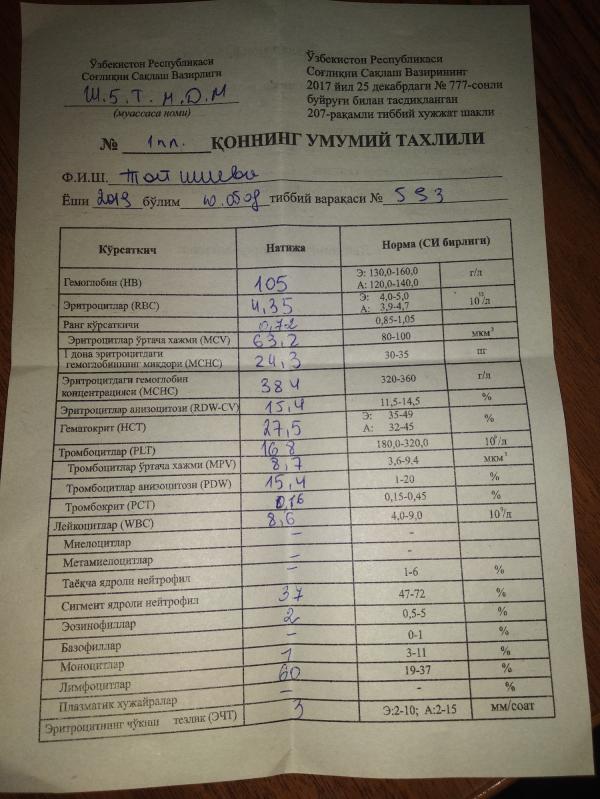 Ўзбекистон Республикаси
Соғлиқни Сақлаш Вазирлиги
Ш.Б.Т.М.Д.М
(муассаса номи)
Ўзбекистон Республикаси
Соғлиқни Сақлаш Вазирининг
2017 йил 25 декабрдаги № 777-сонли
буйруғи билан тасдиқланган
207-рақамли тиббий хужжат шакли
№ 1пл. ҚОННИНГ УМУМИЙ ТАХЛИЛИ
Ф.И.Ш.
Ёши 2019 бўлим тиббий варақаси № 593
Кўрсаткич Натижа Норма (СИ бирлиги)
Гемоглобин (HB) 105 Э: 130,0-160,0 А: 120,0-140,0 г/л
Эритроцитлар (RBC) 4,35 Э: 4,0-5,0 А: 3,9-4,7 10¹²/л
Ранг кўрсаткичи 0,72 0,85-1,05
Эритроцитлар ўртача хажми (MCV) 63,2 80-100 мкм³
1 дона эритроцитдаги гемоглобиннинг миқдори (МСНС) 24,3 30-35 пг
Эритроцитдаги гемоглобин концентрацияси (МСНС) 384 320-360 г/л
Эритроцитлар анизоцитози (RDW-CV) 15,4 11,5-14,5 %
Гематокрит (HCT) 27,5 Э: 35-49 А: 32-45 %
Тромбоцитлар (PLT) 168 180,0-320,0 10⁹/л
Тромбоцитлар ўртача хажми (MPV) 8,7 3,6-9.4 мкм³
Тромбоцитлар анизоцитози (PDW) 15,4 1-20 %
Тромбокрит (PCT) 0,16 0,15-0,45 %
Лейкоцитлар (WBC) 8,6 4,0-9,0 10⁹/л
Миелоцитлар – -
Метамиелоцитлар – -
Таёқча ядроли нейтрофил – 1-6 %
Сигмент ядроли нейтрофил 37 47-72 %
Эозинофиллар 2 0,5-5 %
Базофиллар – 0-1 %
Моноцитлар 1 3-11 %
Лимфоцитлар 60 19-37 %
Плазматик хужайралар – - %
Эритроцитнинг чўкиш тезлик (ЭЧТ) 3 Э:2-10; А:2-15 мм/соат